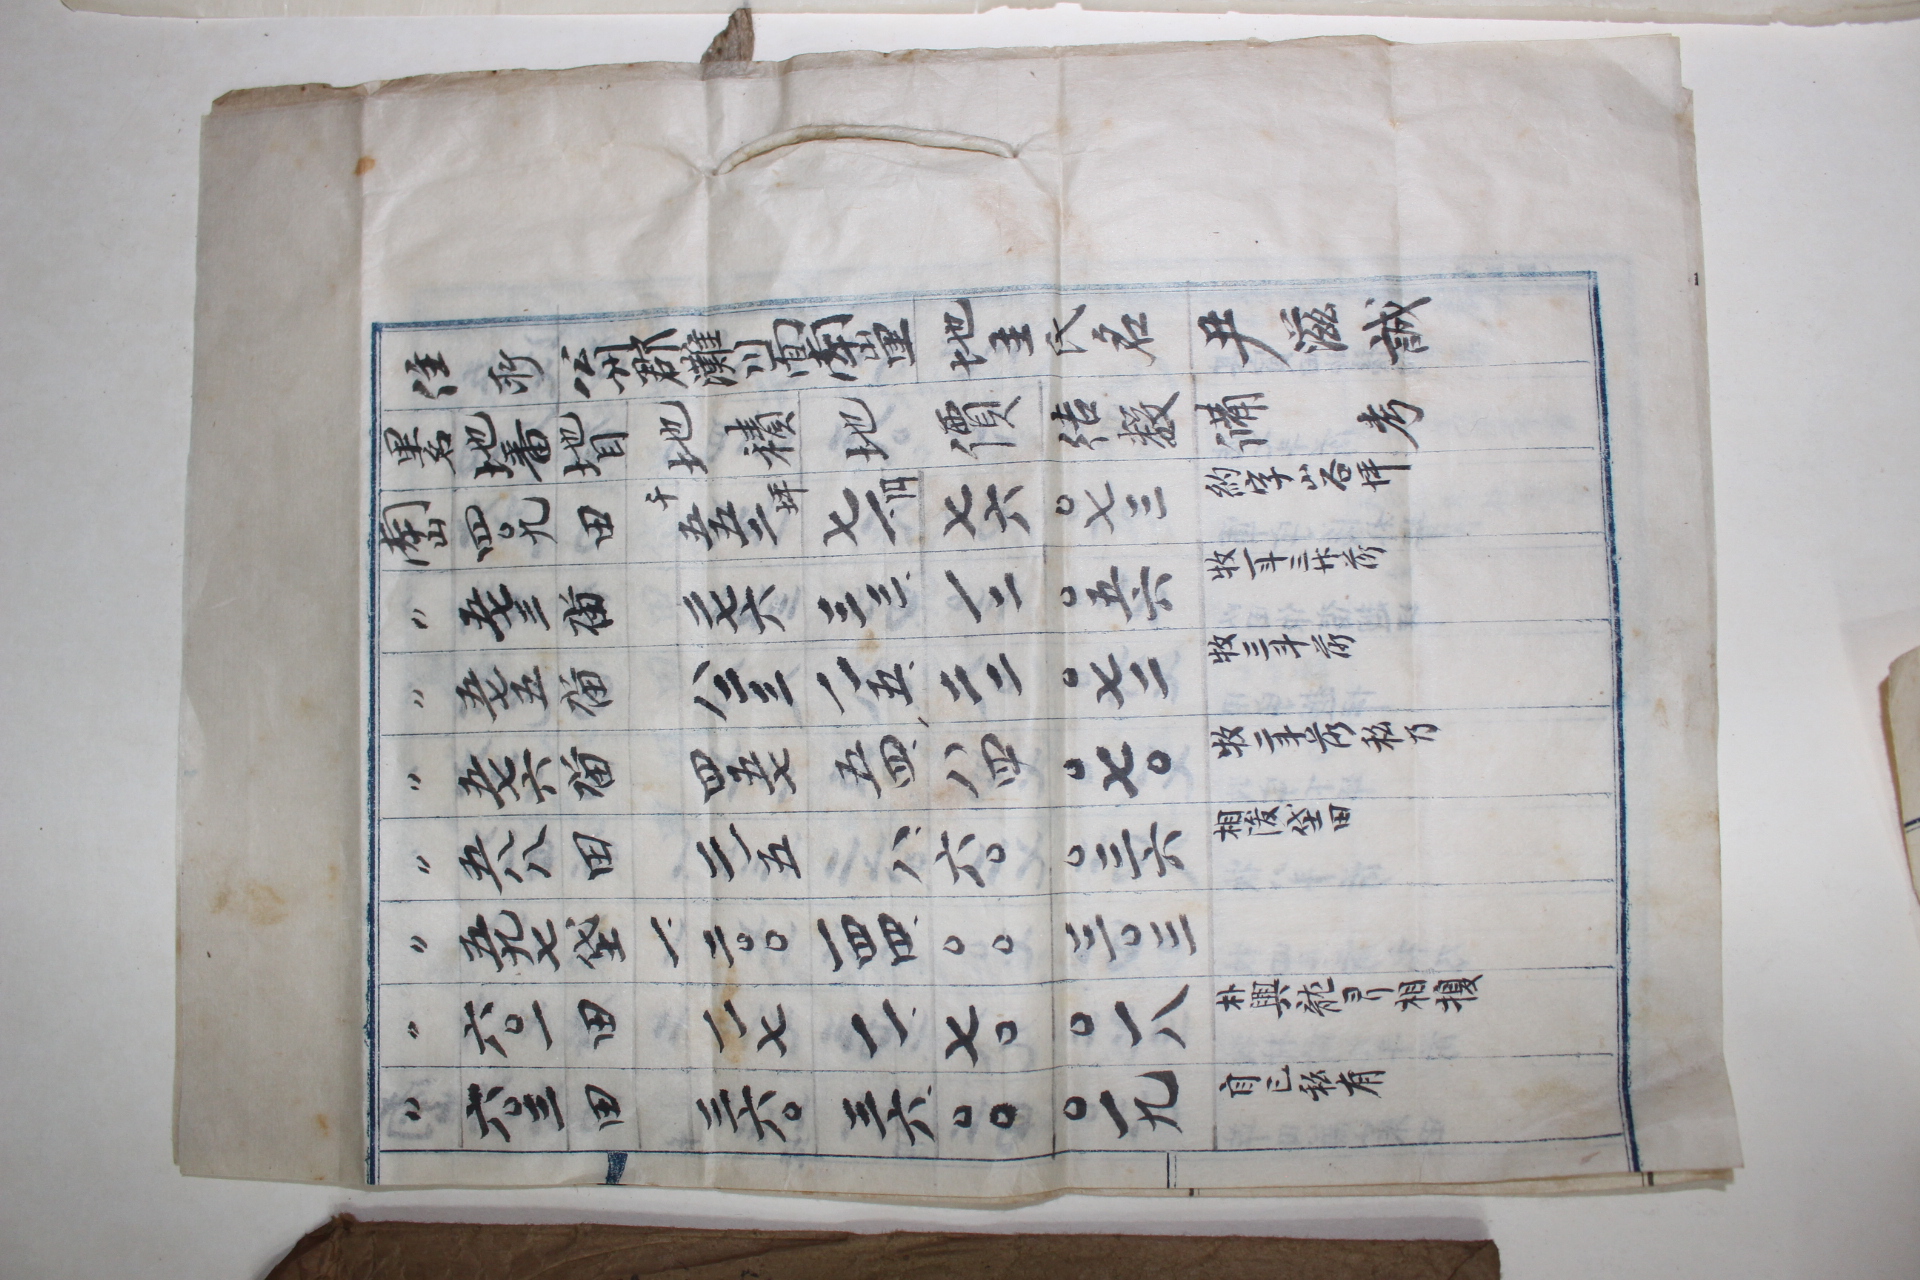 住所 公州郡灘川面南山里 地主氏名 尹滋誠
里名 地番 地目 地積 地價 結數 備考
南山 四〇九 田 千 五五二坪 七一.円 七六 〇七三 約字山谷坪
〃 五七三 畓 二七六 三三. 一二 〇五六 牧一斗三升落
〃 五七五 畓 八二三 一一五. 二二 〇七二 牧三斗落
〃 五七六 畓 四五七 五四. 八四 〇七〇 牧二斗落私乃
〃 五八八 田 二一五 八、 六〇 〇三六 相浚垈田
〃 五九七 垈 一.二〇〇 一四四. 〇〇 三〇三
〃 六〇一 田 一一七 一一. 七〇 〇一八 朴興龍ヨリ相換
〃 六〇三 田 三六〇 三六. 〇〇 〇一九 自己私有